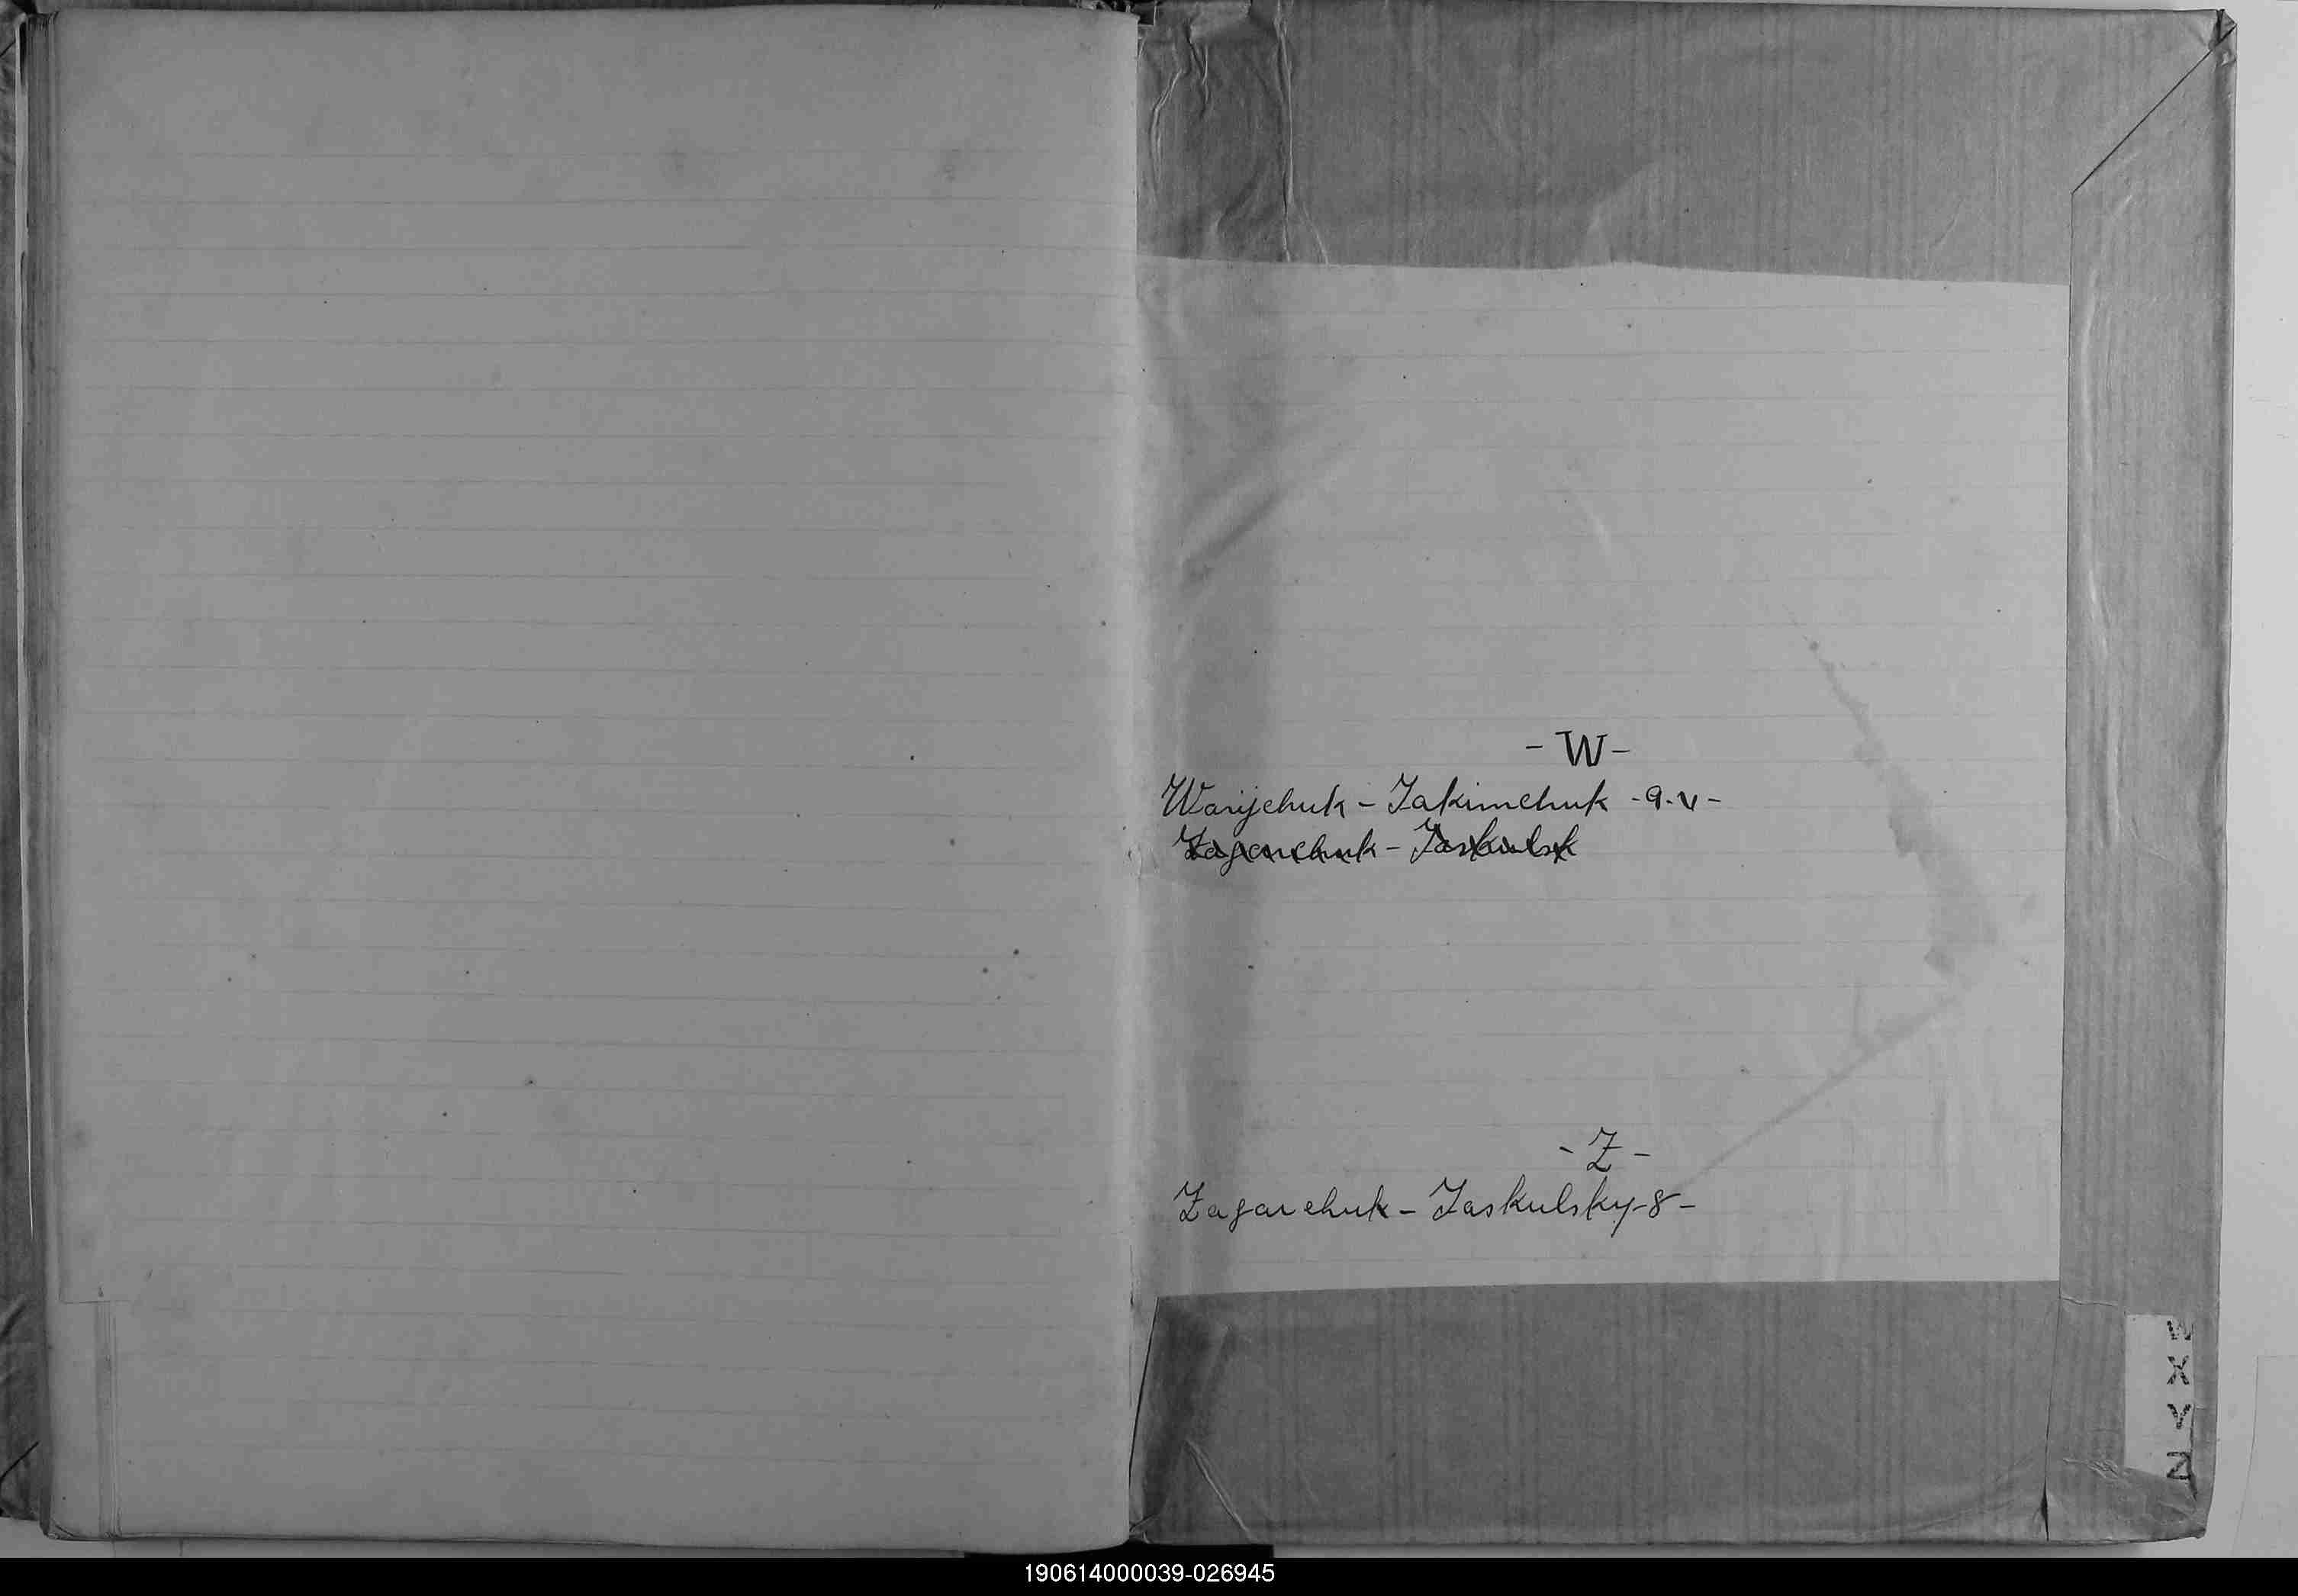 - W -
Warijchuk - Jakimchuk - 9. v -
Zagarchuk - Jaskulsk
- Z -
Zagarchuk - Jaskulsky - 8 -
W
X
Y
Z
190614000039-026945